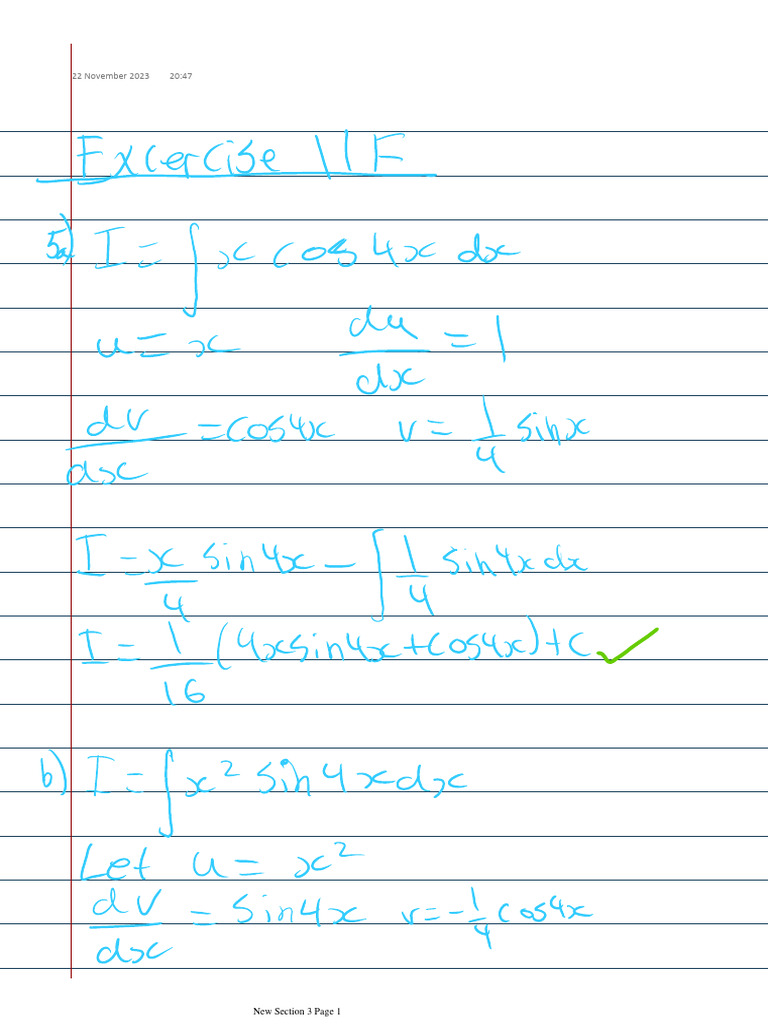 22 November 2023 20:47
Excercise 11F
5a) I = ∫ x cos 4x dx
u = x du/dx = 1
dv/dx = cos4x v = 1/4 sinx
I = x/4 sin4x − ∫ 1/4 sin4x dx
I = 1/16 (4xsin4x + cos4x) + C ✓
b) I = ∫ x² sin 4x dx
Let u = x²
dv/dx = sin4x v = −1/4 cos4x
New Section 3 Page 1